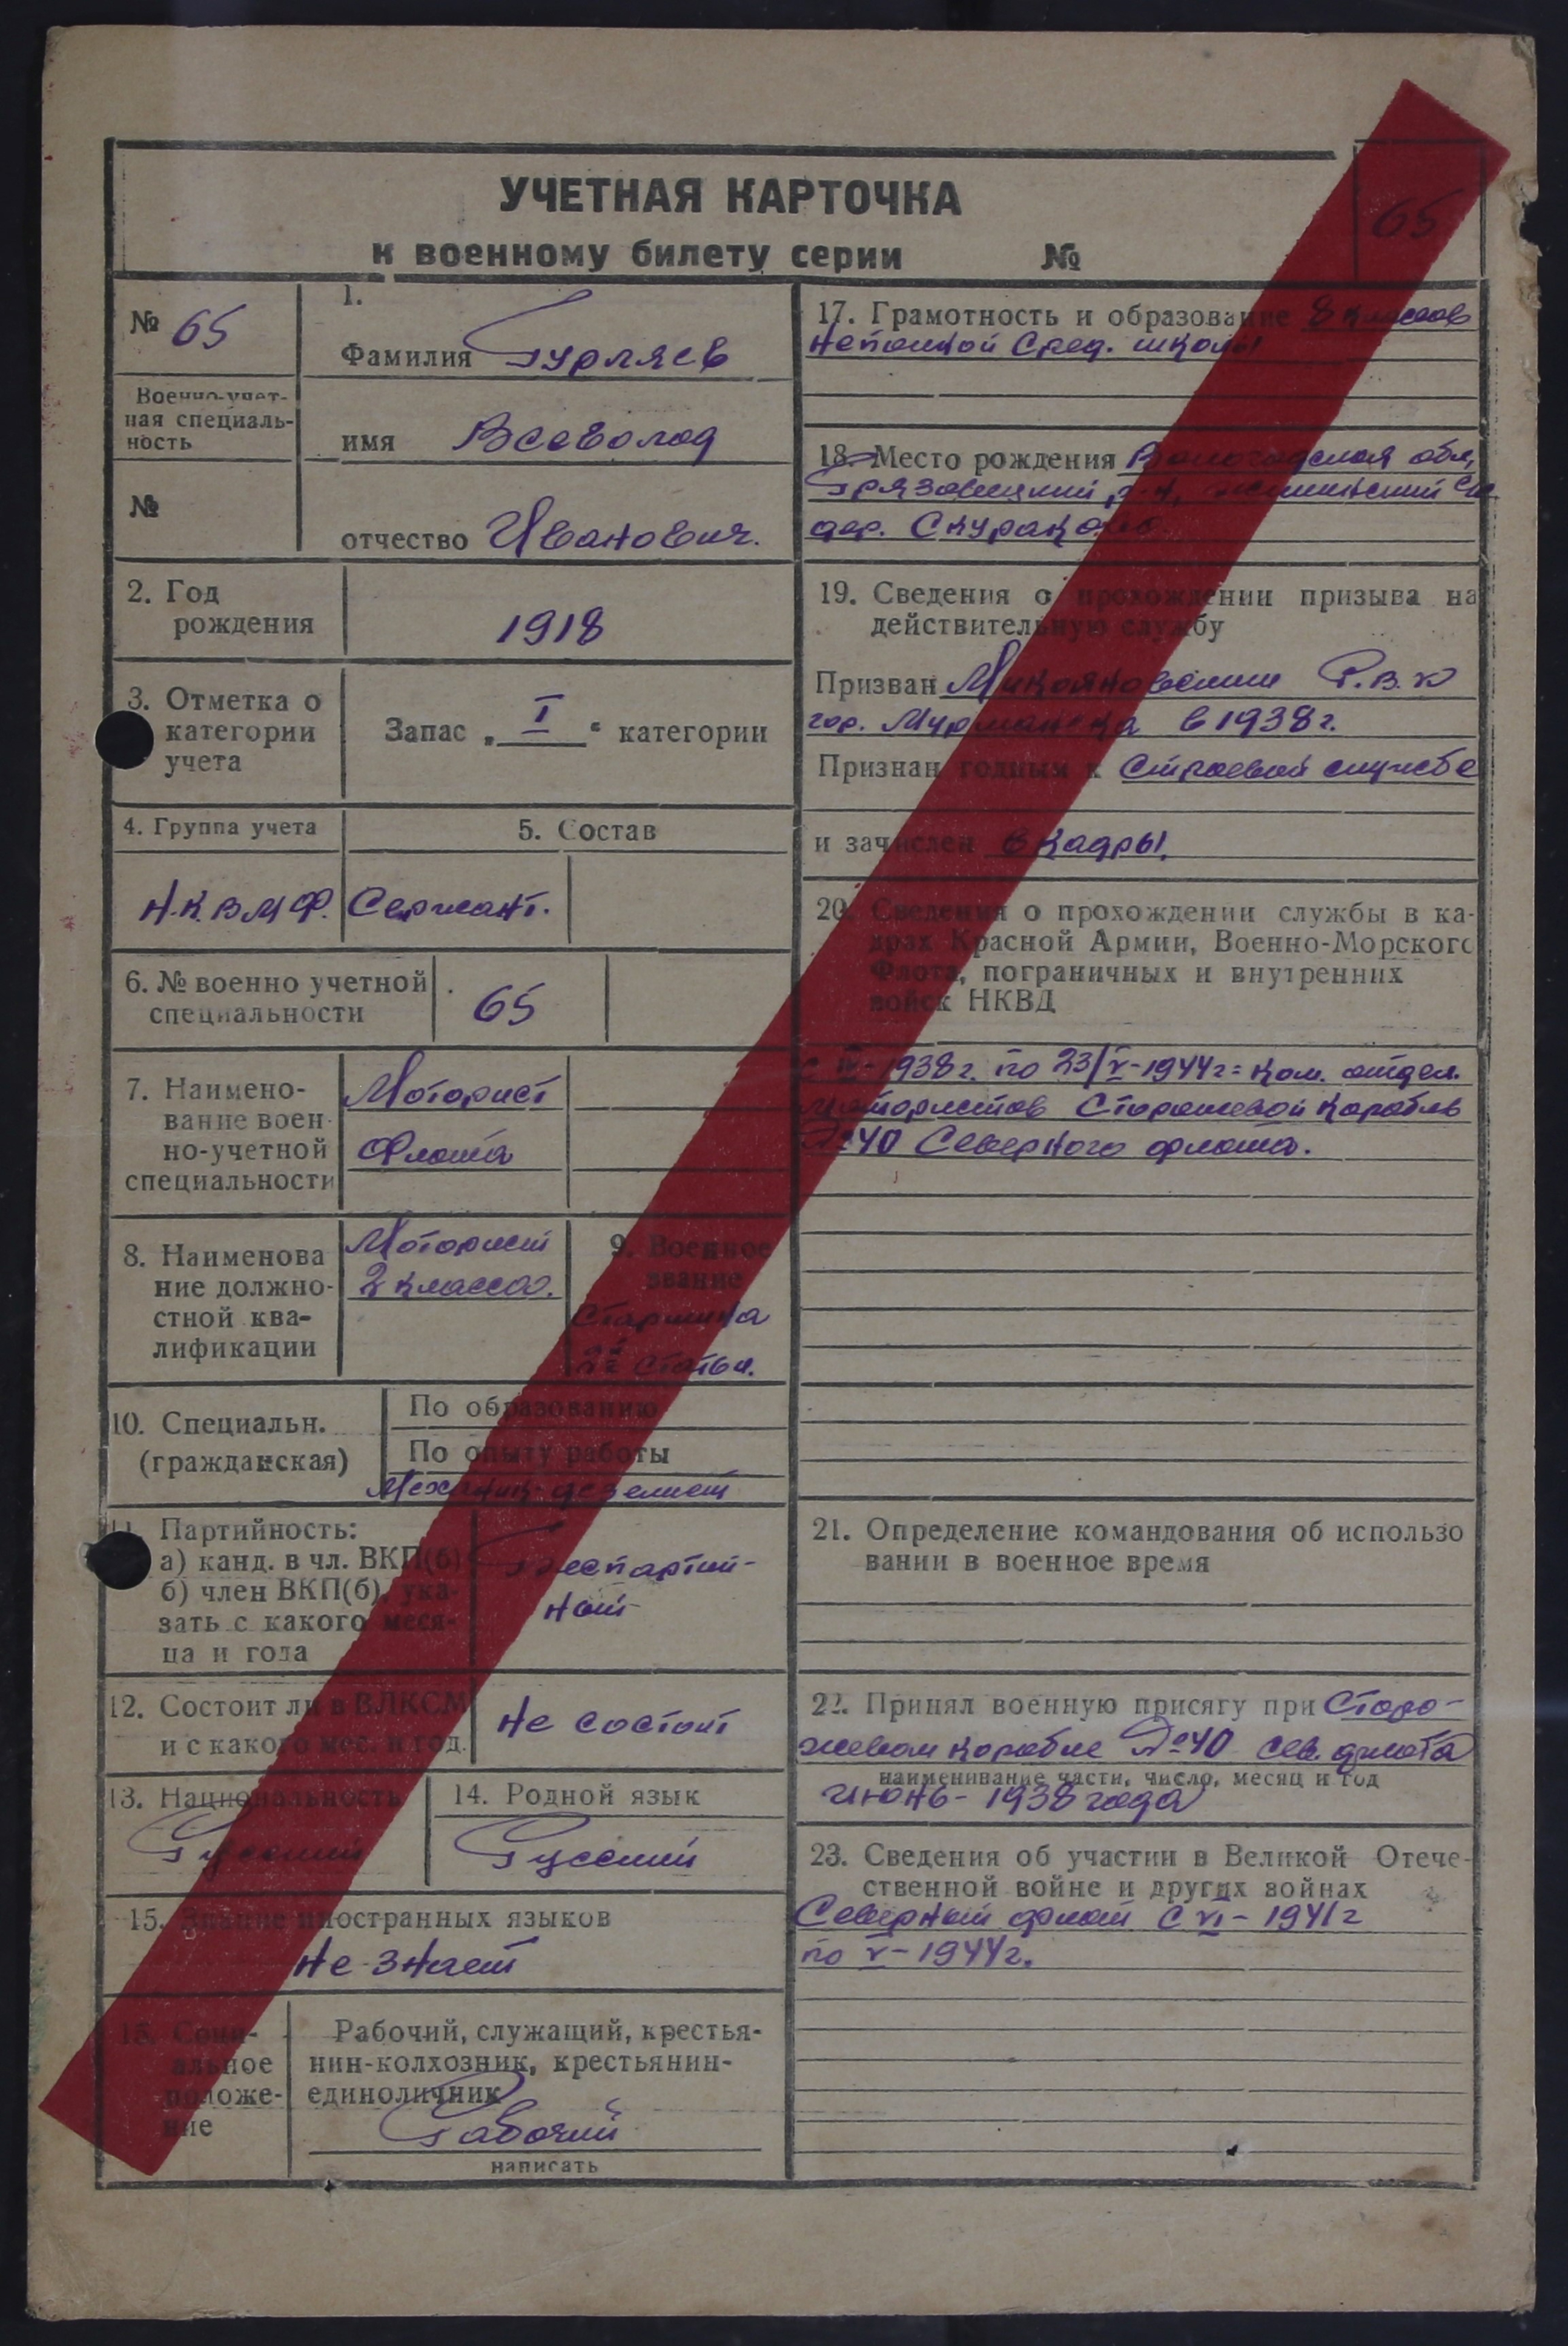 65
УЧЕТНАЯ КАРТОЧКА
к военному билету серии №
№ 65
Военно-учет-
ная специаль-
ность
№
1.
Фамилия Гурляев
имя Всеволод
отчество Иванович.
2. Год
рождения
1918
3. Отметка о
категории
учета
Запас „ I “ категории
4. Группа учета
5. Состав
Н.К.В.М.Ф.
Сержант.
6. № военно учетной
специальности
65
7. Наимено-
вание воен-
но-учетной
специальности
Моторист
Флота
8. Наименова
ние должно-
стной ква-
лификации
Моторист
2 класса.
9. Военное
звание
Старшина
статьи.
10. Специальн.
(гражданская)
По образованию
По опыту работы
Механик-дезелист
11. Партийность:
а) канд. в чл. ВКП(б)
б) член ВКП(б), ука-
зать с какого меся-
ца и года
Беспартий-
ный
12. Состоит ли в ВЛКСМ
и с какого мес. и год.
Не состоит
13. Национальность
Русский
14. Родной язык
Русский
15. Знание иностранных языков
Не знает
16. Соци-
альное
положе-
ние
Рабочий, служащий, крестья-
нин-колхозник, крестьянин-
единоличник
Рабочий
написать
17. Грамотность и образование 8 классов
Сред. школы
18. Место рождения Вологодская обл,
Грязовецкий р-н,
дер. Скураково
19. Сведения о прохождении призыва на
действительную службу
Призван Микояновским Р.В.К
гор. Мурманска в 1938 г.
Признан годным к строевой службе
и зачислен в кадры.
20. Сведения о прохождении службы в ка-
драх Красной Армии, Военно-Морского
Флота, пограничных и внутренних
войск НКВД
1938 г. по 23/V-1944 г = ком. отдел.
мотористов Сторожевой корабль
№ 40 Северного флота.
21. Определение командования об использо
вании в военное время
22. Принял военную присягу при Сторо-
жевом корабле № 40 Сев. флота
наименивание части, число, месяц и год
июнь - 1938 года
23. Сведения об участии в Великой Отече-
ственной войне и других войнах
Северный флот с VI - 1941 г
по V - 1944 г.